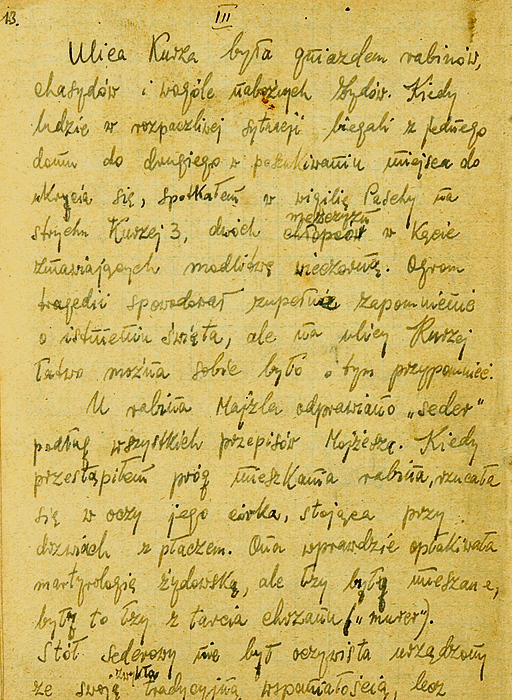 13.
III
Ulica Kurza była gniazdem rabinów,
chasydów i wogóle nabożnych Żydów. Kiedy
ludzie w rozpaczliwej sytuacji biegali z jednego
domu do drugiego w poszukiwaniu miejsca do
ukrycia się, spotkałem w wigilię Paschy na
strychu Kurzej 3, dwóch mężczyzn w kącie
zmawiających modlitwę wieczorną. Ogrom
tragedii spowodował zupełnie zapomnienie
o istnieniu święta, ale na ulicy Kurzej
łatwo można sobie było o tym przypomnieć.
U rabina Majzla odprawiano „seder"
podług wszystkich przepisów Mojżesza. Kiedy
przestąpiłem próg mieszkania rabina, rzucała
się w oczy jego córka, stojąca przy
drzwiach z płaczem. Ona wprawdzie opłakiwała
martyrologię żydowską, ale łzy były mieszane,
były to łzy z tarcia chrzanu („murer").
Stół sederowy nie był oczywista urządzony
ze swoją zwykłą tradycyjną wspaniałością, lecz